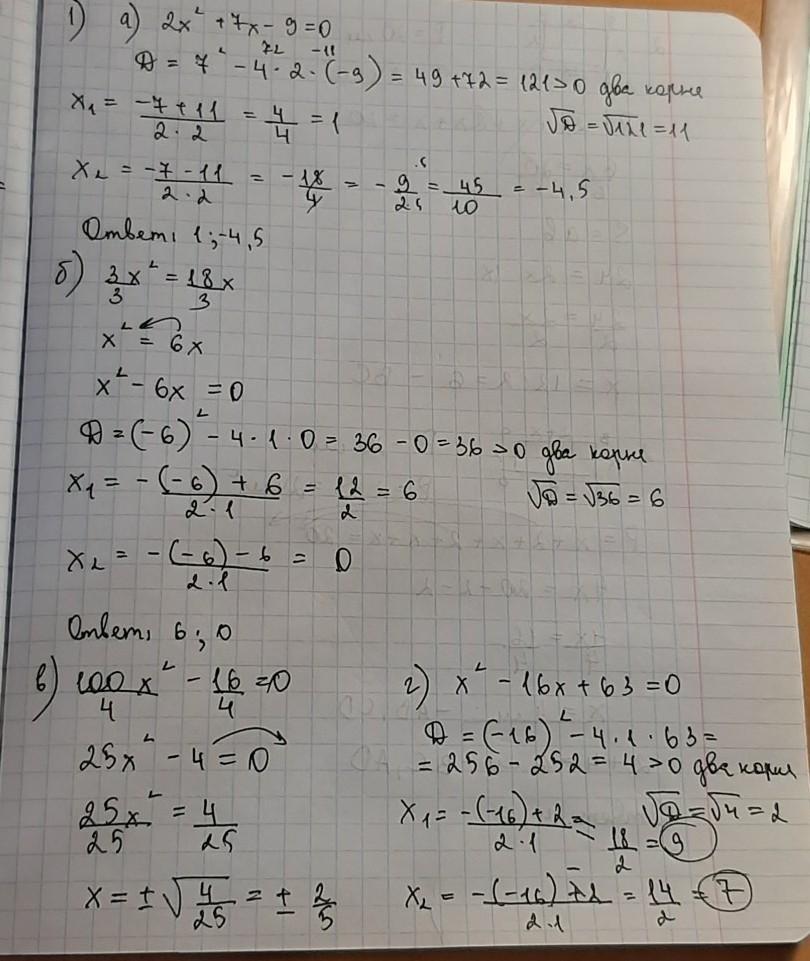 1) а) 2x² + 7x - 9 = 0
D = 7² - 4 · 2 · (-9) = 49 + 72 = 121 > 0 два корня
x₁ = (-7 + 11)/(2 · 2) = 4/4 = 1
√D = √121 = 11
x₂ = (-7 - 11)/(2 · 2) = -18/4 = -9/2 = 45/10 = -4,5
Ответ: 1; -4,5
б) 3x²/3 = 18x/3
x² = 6x
x² - 6x = 0
D = (-6)² - 4 · 1 · 0 = 36 - 0 = 36 > 0 два корня
x₁ = (-(-6) + 6)/(2 · 1) = 12/2 = 6
√D = √36 = 6
x₂ = (-(-6) - 6)/(2 · 1) = 0
Ответ: 6; 0
в) 100x²/4 - 16/4 = 0
25x² - 4 = 0
25x²/25 = 4/25
x = ±√(4/25) = ± 2/5
г) x² - 16x + 63 = 0
D = (-16)² - 4 · 1 · 63 =
= 256 - 252 = 4 > 0 два корня
x₁ = (-(-16) + 2)/(2 · 1) = 18/2 = 9
√D = √4 = 2
x₂ = (-(-16) - 2)/(2 · 1) = 14/2 = 7